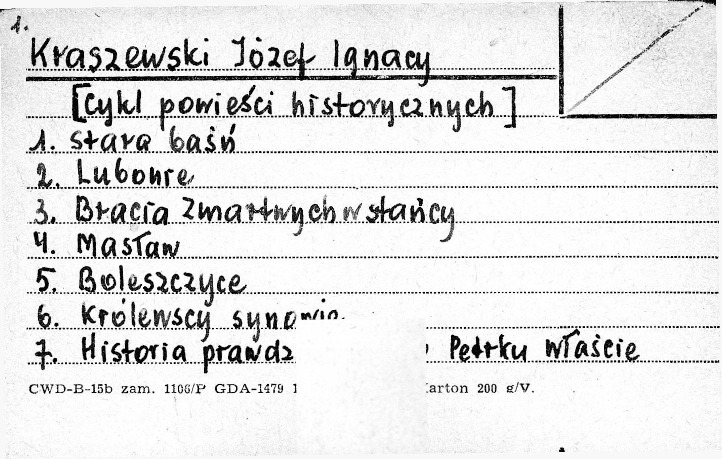 1.
Kraszewski Józef Ignacy
[Cykl powieści historycznych]
1. Stara baśń
2. Lubonie
3. Bracia Zmartwychwstańcy
4. Masław
5. Boleszczyce
6. Królewscy
7. Historia Petrku właście
CWD-B-15b zam. 1106/P GDA-1479 200 g/V.